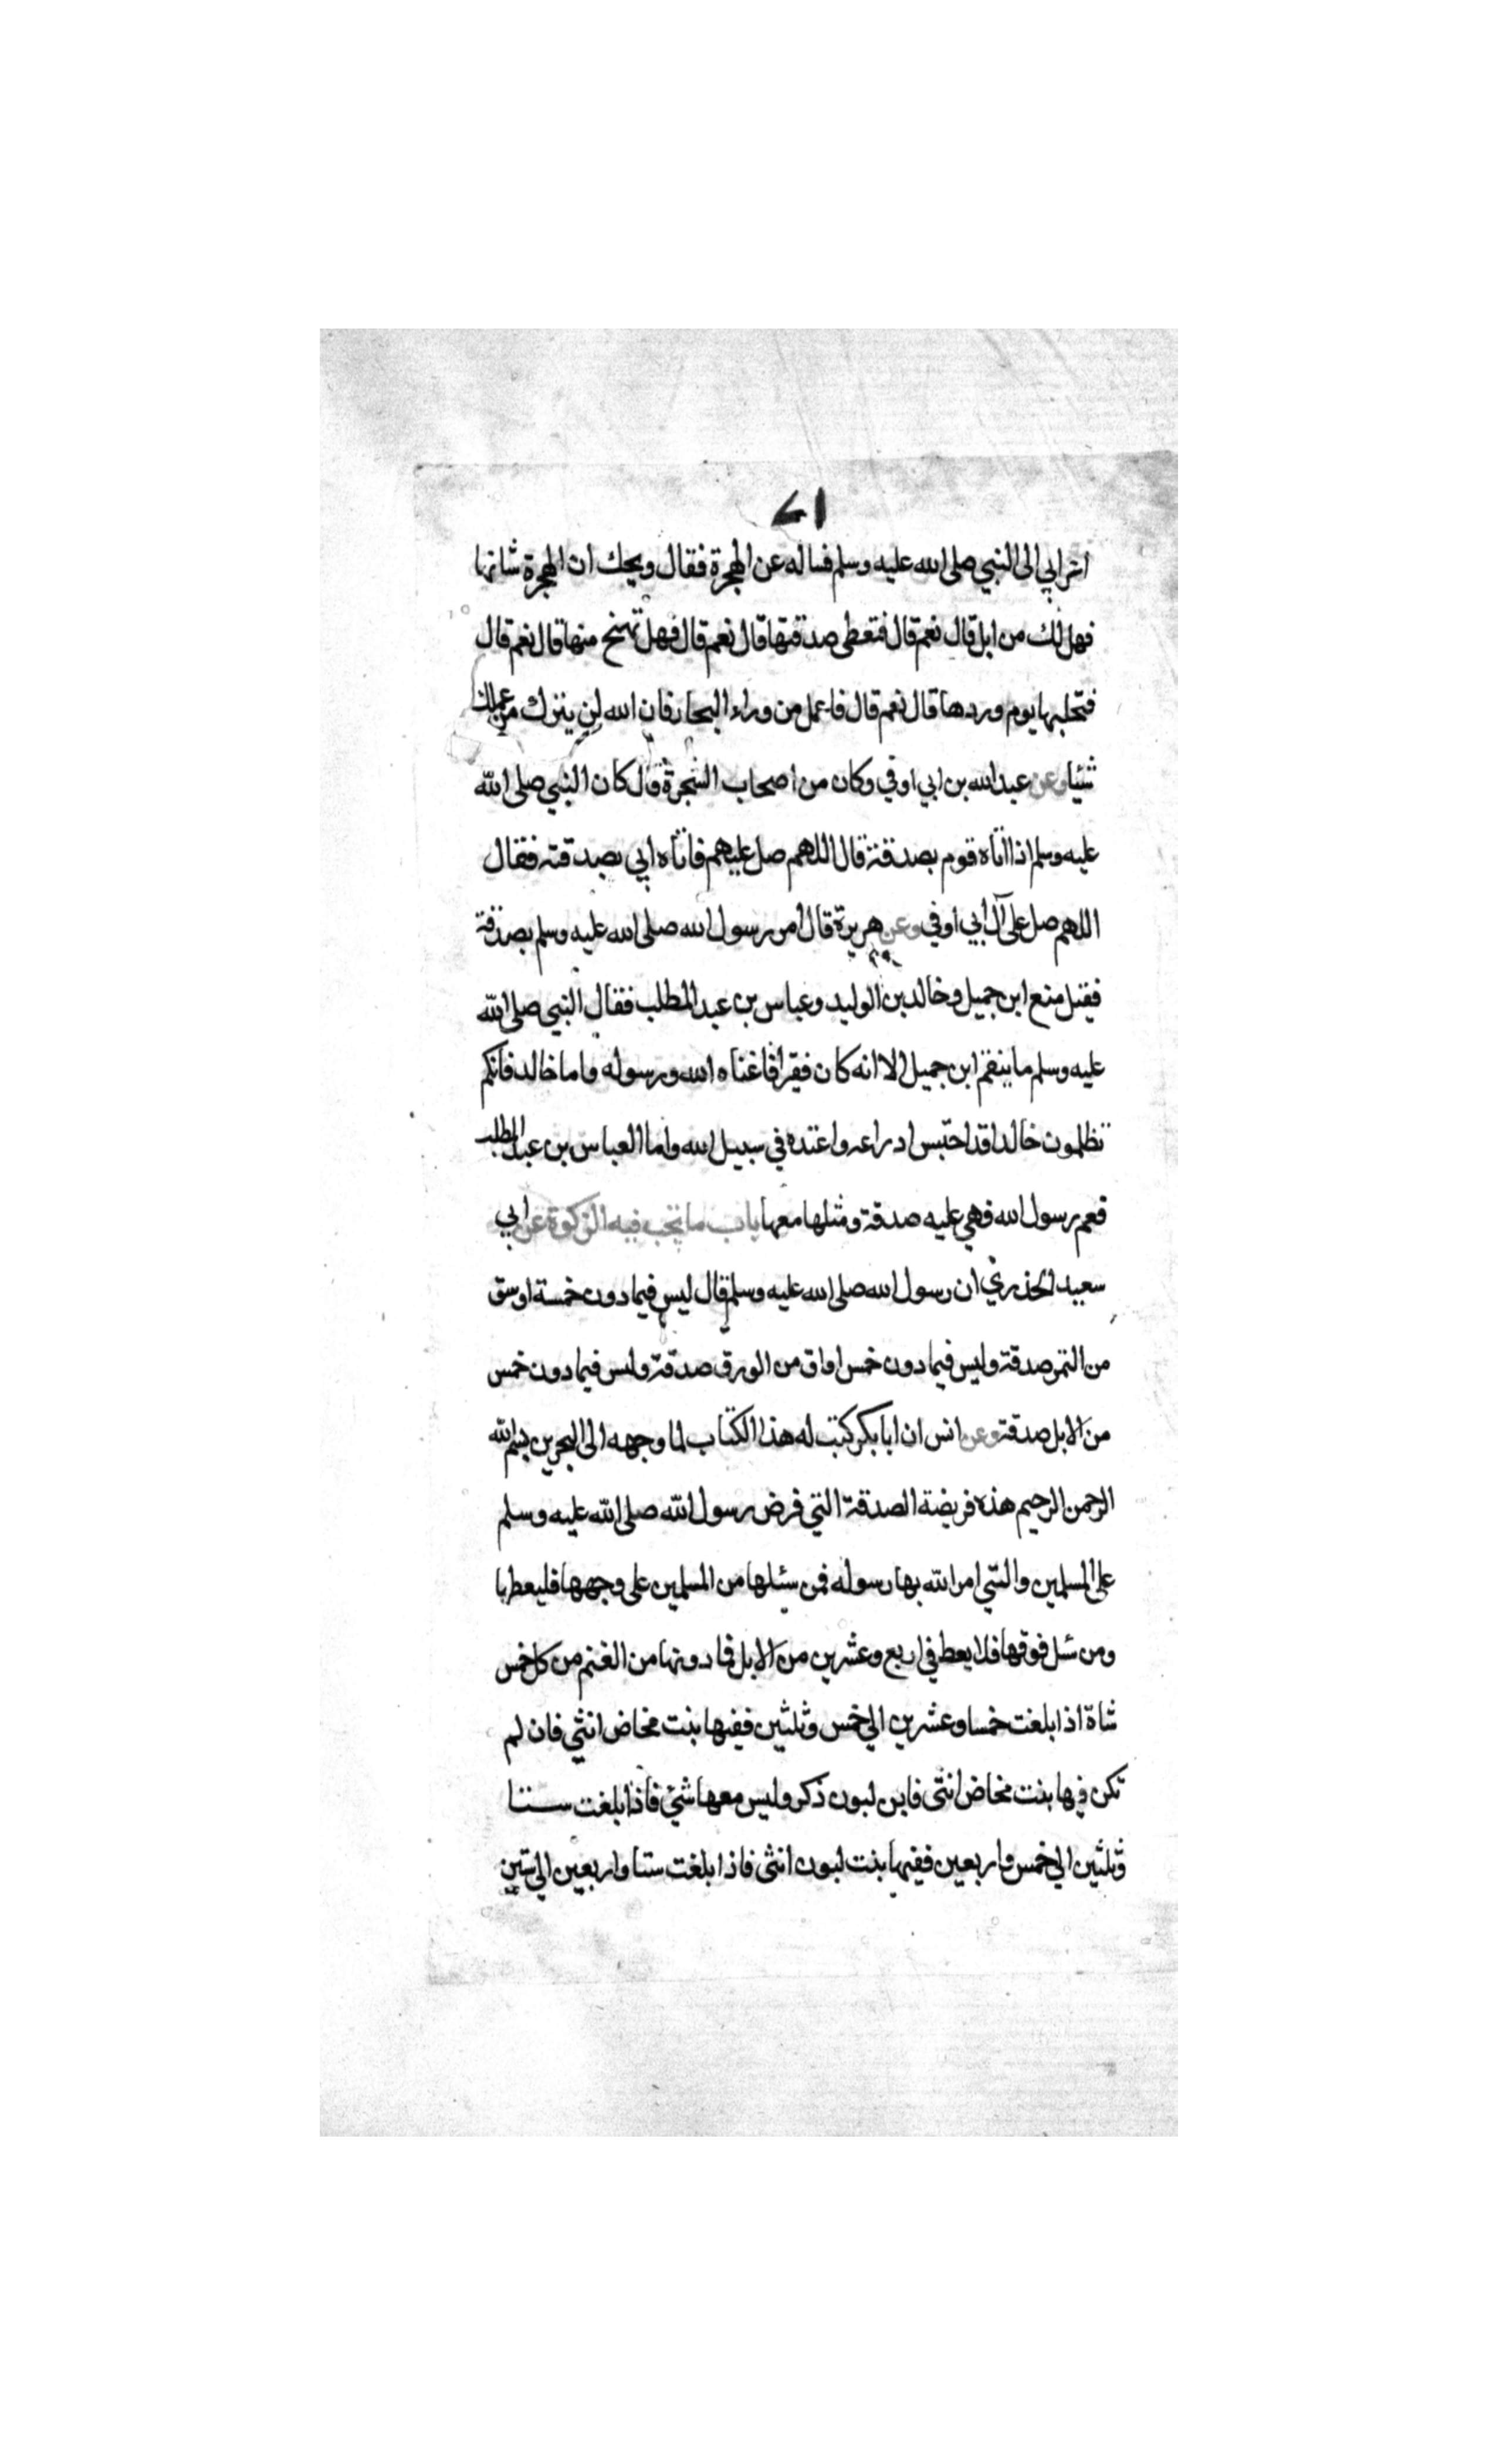 ٧١
اعرابي الى النبي صلى الله عليه وسلم فساله عن الهجرة فقال ويحك ان الهجرة شانها
فهل لك من ابل قال نعم قال فتعطي صدقتها قال نعم قال فهل تمنح منها قال نعم قال
فتحلبها يوم وردها قال نعم قال فاعمل من وراء البحار فان الله لن يترك من عملك
شيئا وعن عبد الله بن ابي اوفي وكان من اصحاب الشجرة قال كان النبي صلى الله
عليه وسلم اذا اتاه قوم بصدقة قال اللهم صل عليهم فاتاه ابي بصدقته فقال
اللهم صل على آل ابي اوفي وعن هريرة قال امر رسول الله صلى الله عليه وسلم بصدقة
فقيل منع ابن جميل وخالد بن الوليد وعباس بن عبد المطلب فقال النبي صلى الله
عليه وسلم ما ينقم ابن جميل الا انه كان فقيرا فاغناه الله ورسوله واما خالد فانكم
تظلمون خالدا قد احتبس ادراعه واعتده في سبيل الله واما العباس بن عبد المطلب
فعم رسول الله فهي عليه صدقة ومثلها معها باب ما تجب فيه الزكوة عن ابي
سعيد الخذري ان رسول الله صلى الله عليه وسلم قال ليس فيما دون خمسة اوسق
من التمر صدقة وليس فيما دون خمس اواق من الورق صدقة وليس فيما دون خمس
من الابل صدقة وعن انس ان ابا بكر كتب له هذا الكتاب لما وجهه الى البحرين بسم الله
الرحمن الرحيم هذه فريضة الصدقة التي فرض رسول الله صلى الله عليه وسلم
على المسلمين والتي امر الله بها رسوله فمن سئلها من المسلمين على وجهها فليعطها
ومن سئل فوقها فلا يعط في اربع وعشرين من الابل فما دونها من الغنم من كل خمس
شاة اذا بلغت خمسا وعشرين الى خمس وثلثين ففيها بنت مخاض انثي فان لم
تكن فيها بنت مخاض انثى فابن لبون ذكر وليس معها شئ فاذا بلغت ستا
وثلثين الى خمس واربعين ففيها بنت لبون انثى فاذا بلغت ستا واربعين الى ستين